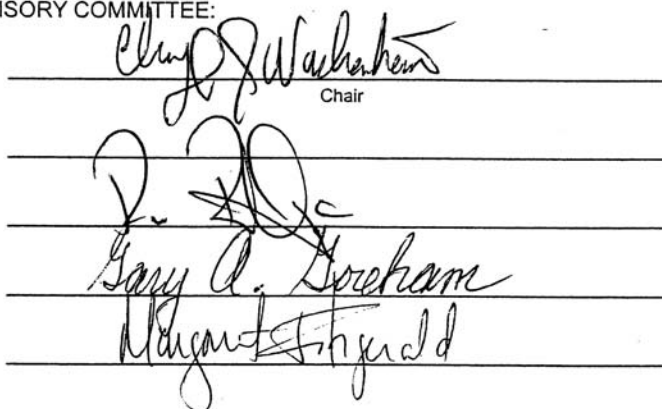 ISORY COMMITTEE:
Cheryl J Wachenheim
Chair
Gary A. Goreham
Margaret Fitzgerald